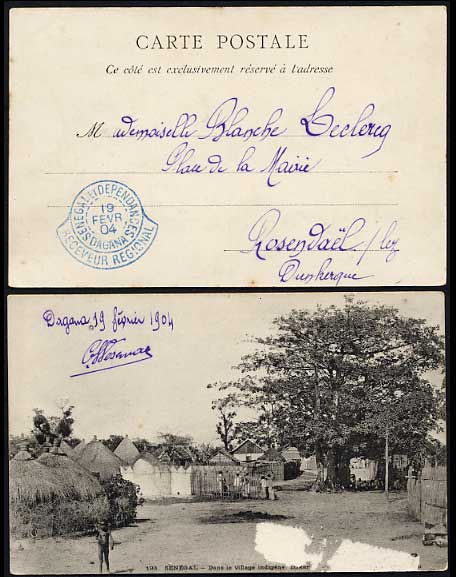 CARTE POSTALE
Ce côté est exclusivement réservé à l'adresse
Mademoiselle Blanche Leclercq
Place de la Mairie
Rosendaël / lez
Dunkerque
SÉNÉGAL ET DEPENDANCES
19
FEVR
04
DAGANA
RECEVEUR REGIONAL
Dagana, 19 février 1904
193. SENÉGAL - Dans le village indigène. Dakar